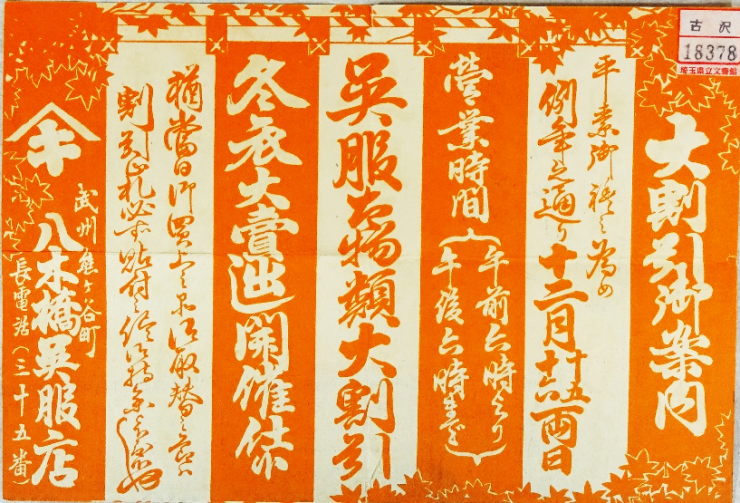 古沢
18378
埼玉県立文書館
大割引御案内
平素御礼之為め
例年之通り十二月十五十六両日
營業時間
午前六時より
午後六時まで
呉服太物類大割引
冬衣大賣出開催仕候
猶當日御買上之品御取替之節ハ
割引正札必ず貼付之
キ
武州熊ヶ谷町
八木橋呉服店
長電話(三十五番)